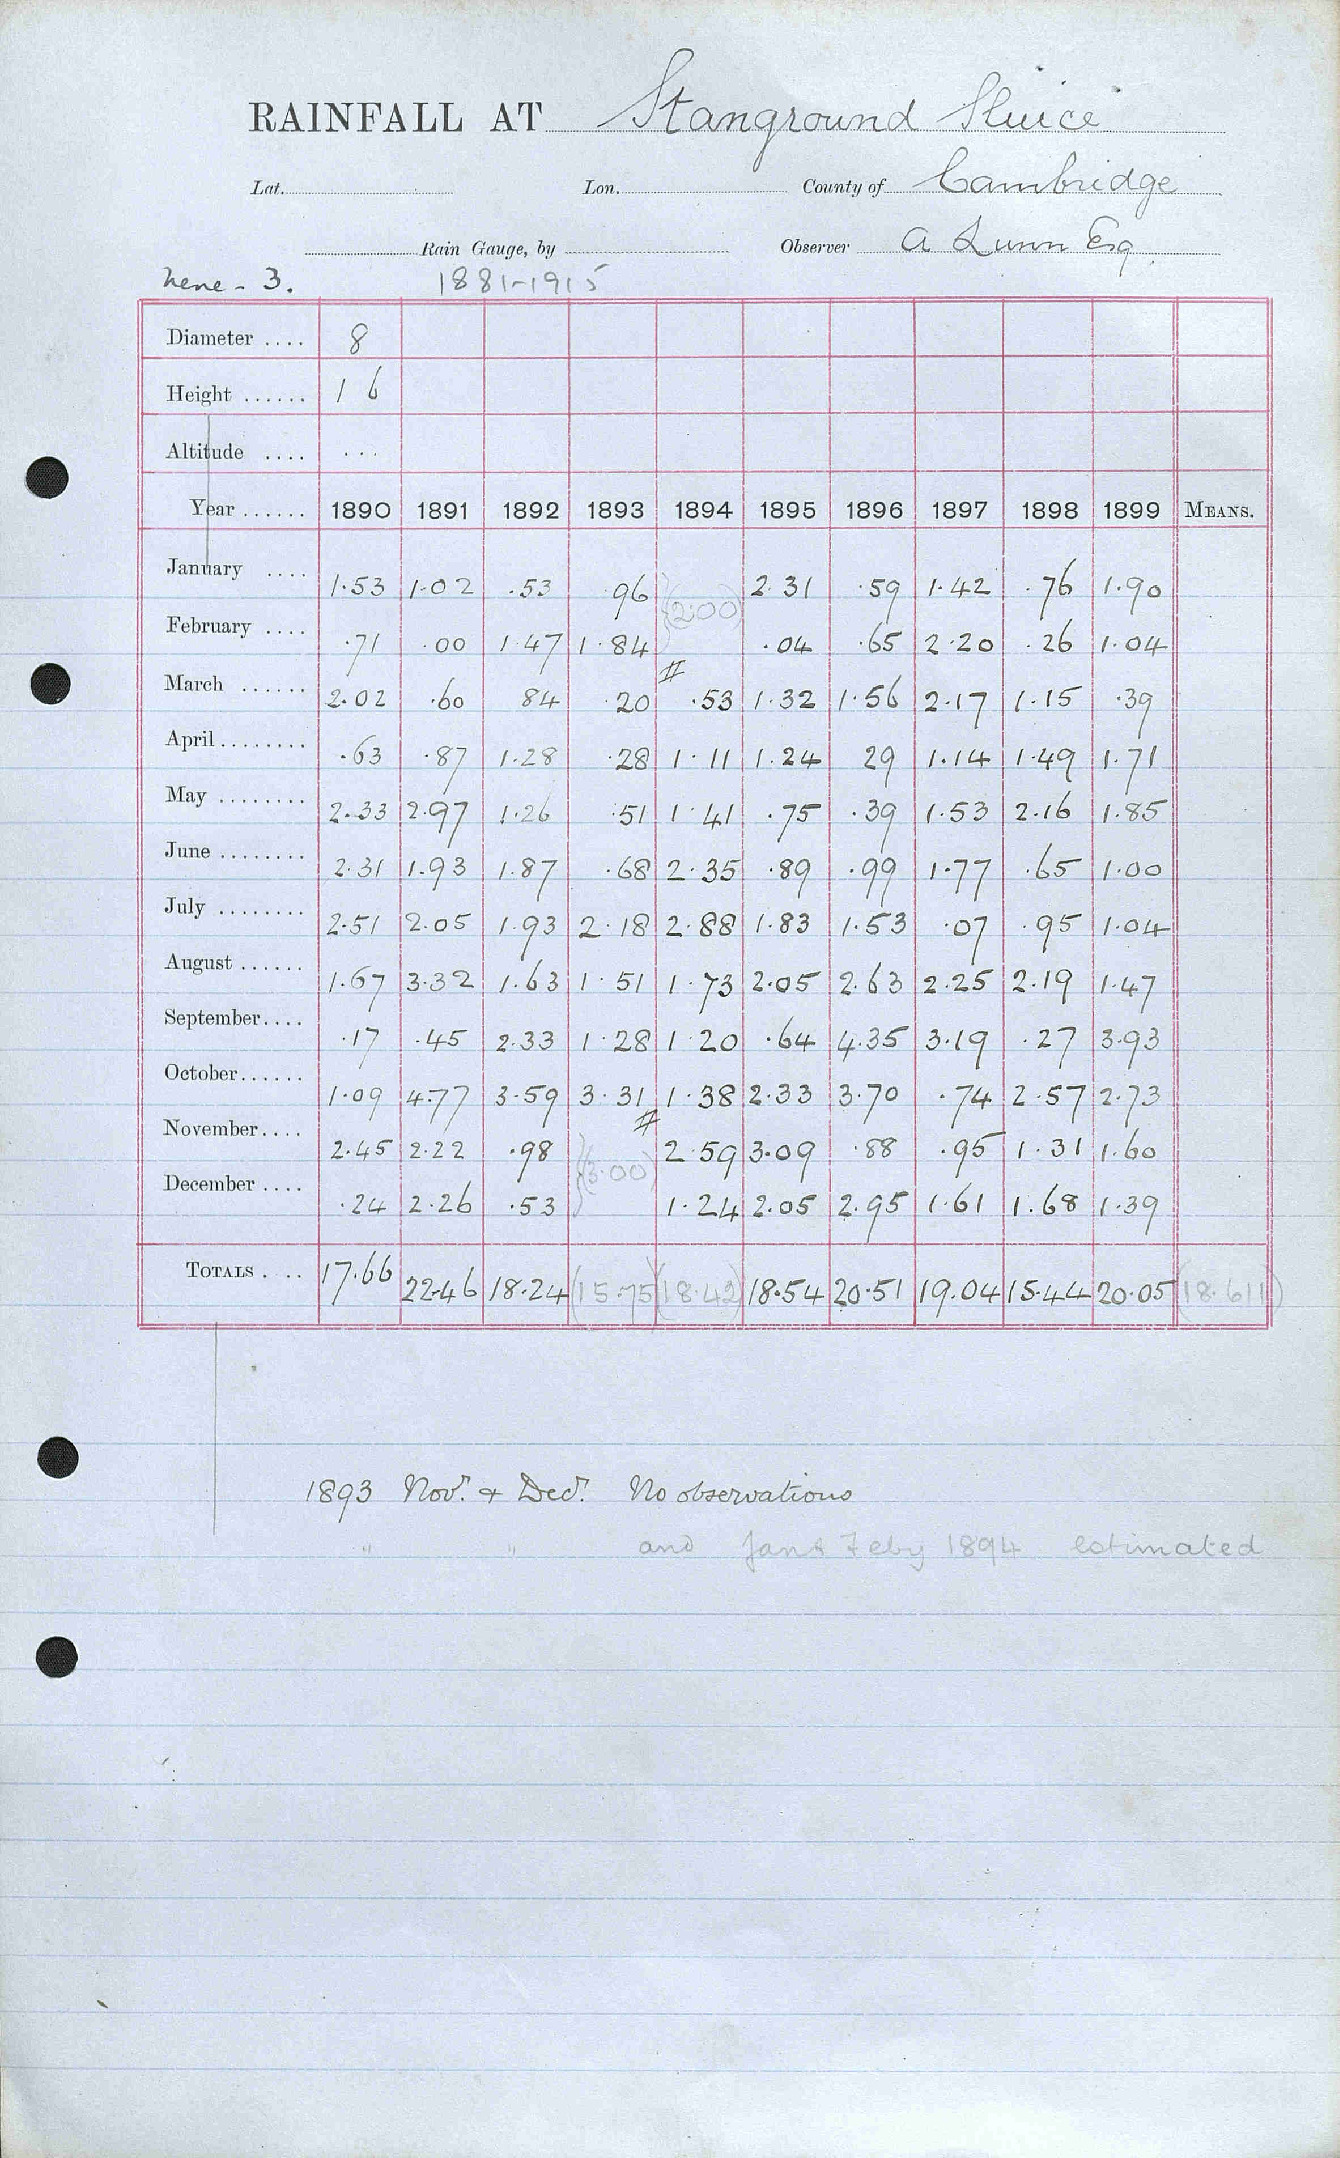 RAINFALL AT Stanground Sluice
Lat. Lon. County of Cambridge
Rain Gauge, by Observer A Lunn Esq
Nene - 3. 1881-1915
Diameter .... 8
Height ...... 1 6
Altitude .... ...
Year ...... 1890 1891 1892 1893 1894 1895 1896 1897 1898 1899 MEANS.
January .... 1.53 1.02 .53 .96 (2.00) 2.31 .59 1.42 .76 1.90
February .... .71 .00 1.47 1.84 .04 .65 2.20 .26 1.04
March ...... 2.02 .60 84 .20 # .53 1.32 1.56 2.17 1.15 .39
April ........ .63 .87 1.28 .28 1.11 1.24 29 1.14 1.49 1.71
May ........ 2.33 2.97 1.26 .51 1.41 .75 .39 1.53 2.16 1.85
June ........ 2.31 1.93 1.87 .68 2.35 .89 .99 1.77 .65 1.00
July ........ 2.51 2.05 1.93 2.18 2.88 1.83 1.53 .07 .95 1.04
August ...... 1.67 3.32 1.63 1.51 1.73 2.05 2.63 2.25 2.19 1.47
September.... .17 .45 2.33 1.28 1.20 .64 4.35 3.19 .27 3.93
October...... 1.09 4.77 3.59 3.31 1.38 2.33 3.70 .74 2.57 2.73
November.... 2.45 2.22 .98 # (3.00) 2.59 3.09 .88 .95 1.31 1.60
December .... .24 2.26 .53 1.24 2.05 2.95 1.61 1.68 1.39
TOTALS .... 17.66 22.46 18.24 (15.75) (18.42) 18.54 20.51 19.04 15.44 20.05 (18.611)
1893 Novr. & Decr. No observations
" " and Jan & Feby 1894 estimated